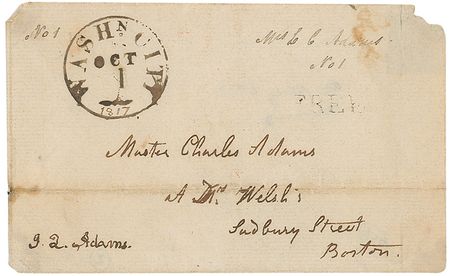 No 1
WASHN CITY
OCT
1
1817
Mrs L C Adams
No 1
FREE
Master Charles Adams
At Dr Welsh's
Sudbury Street
Boston.
J. Q. Adams.